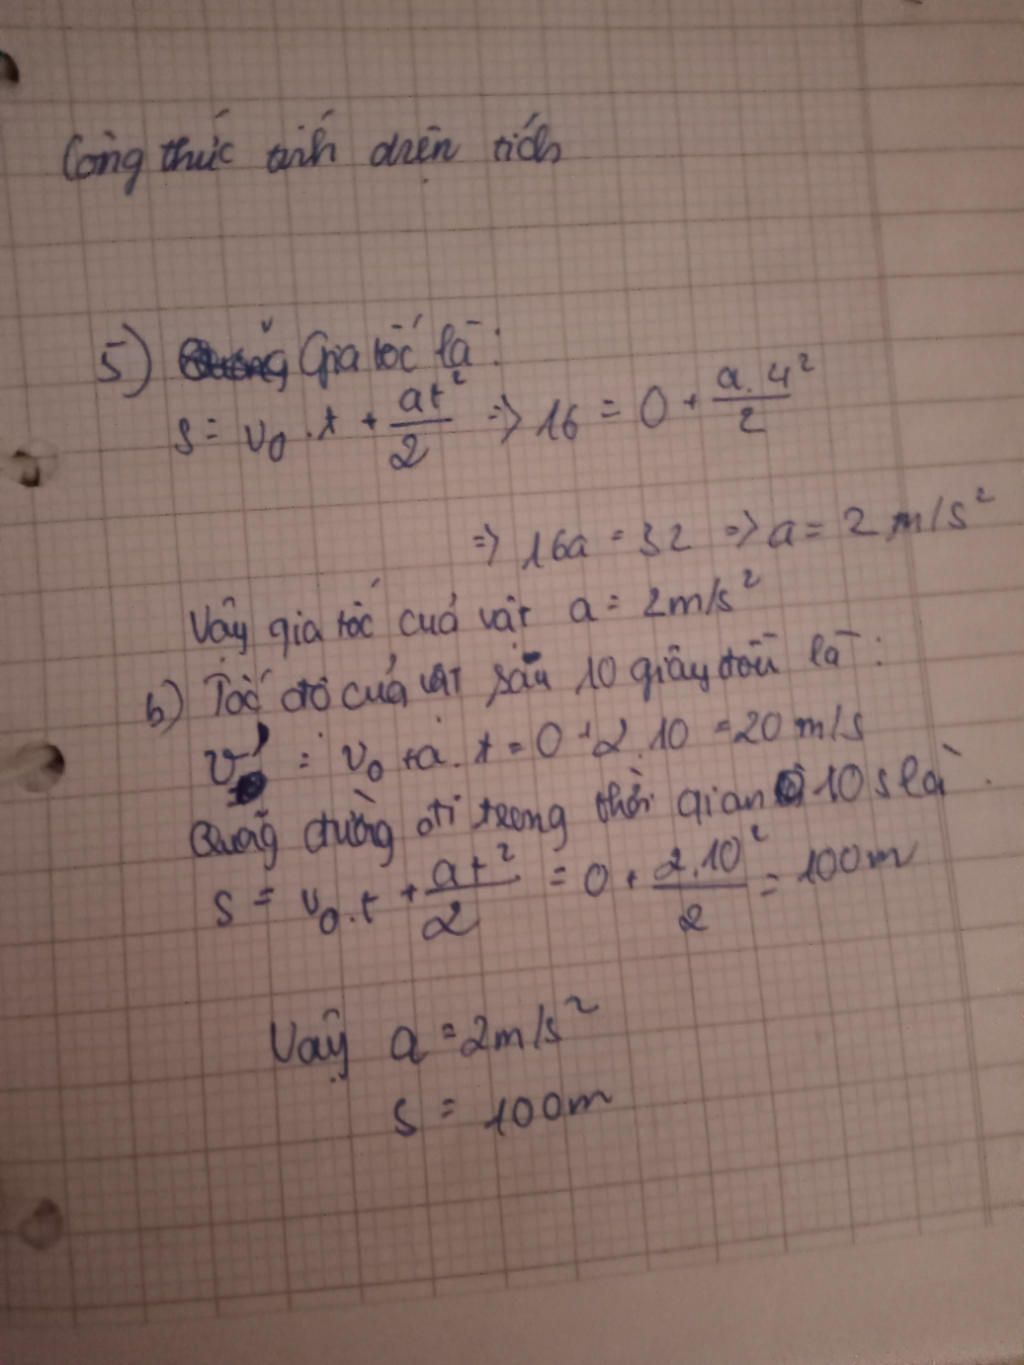 Công thức tính diện tích
5) Gia tốc là:
s = v₀.t + at²/2 => 16 = 0 + a.4²/2
=> 16a = 32 => a = 2 m/s²
Vậy gia tốc của vật a = 2m/s²
b) Tốc độ của vật sau 10 giây đầu là:
v' = v₀ + a.t = 0 + 2.10 = 20 m/s
Quãng đường đi trong thời gian 10s là
s = v₀.t + at²/2 = 0 + 2.10²/2 = 100m
Vậy a = 2m/s²
s = 100m